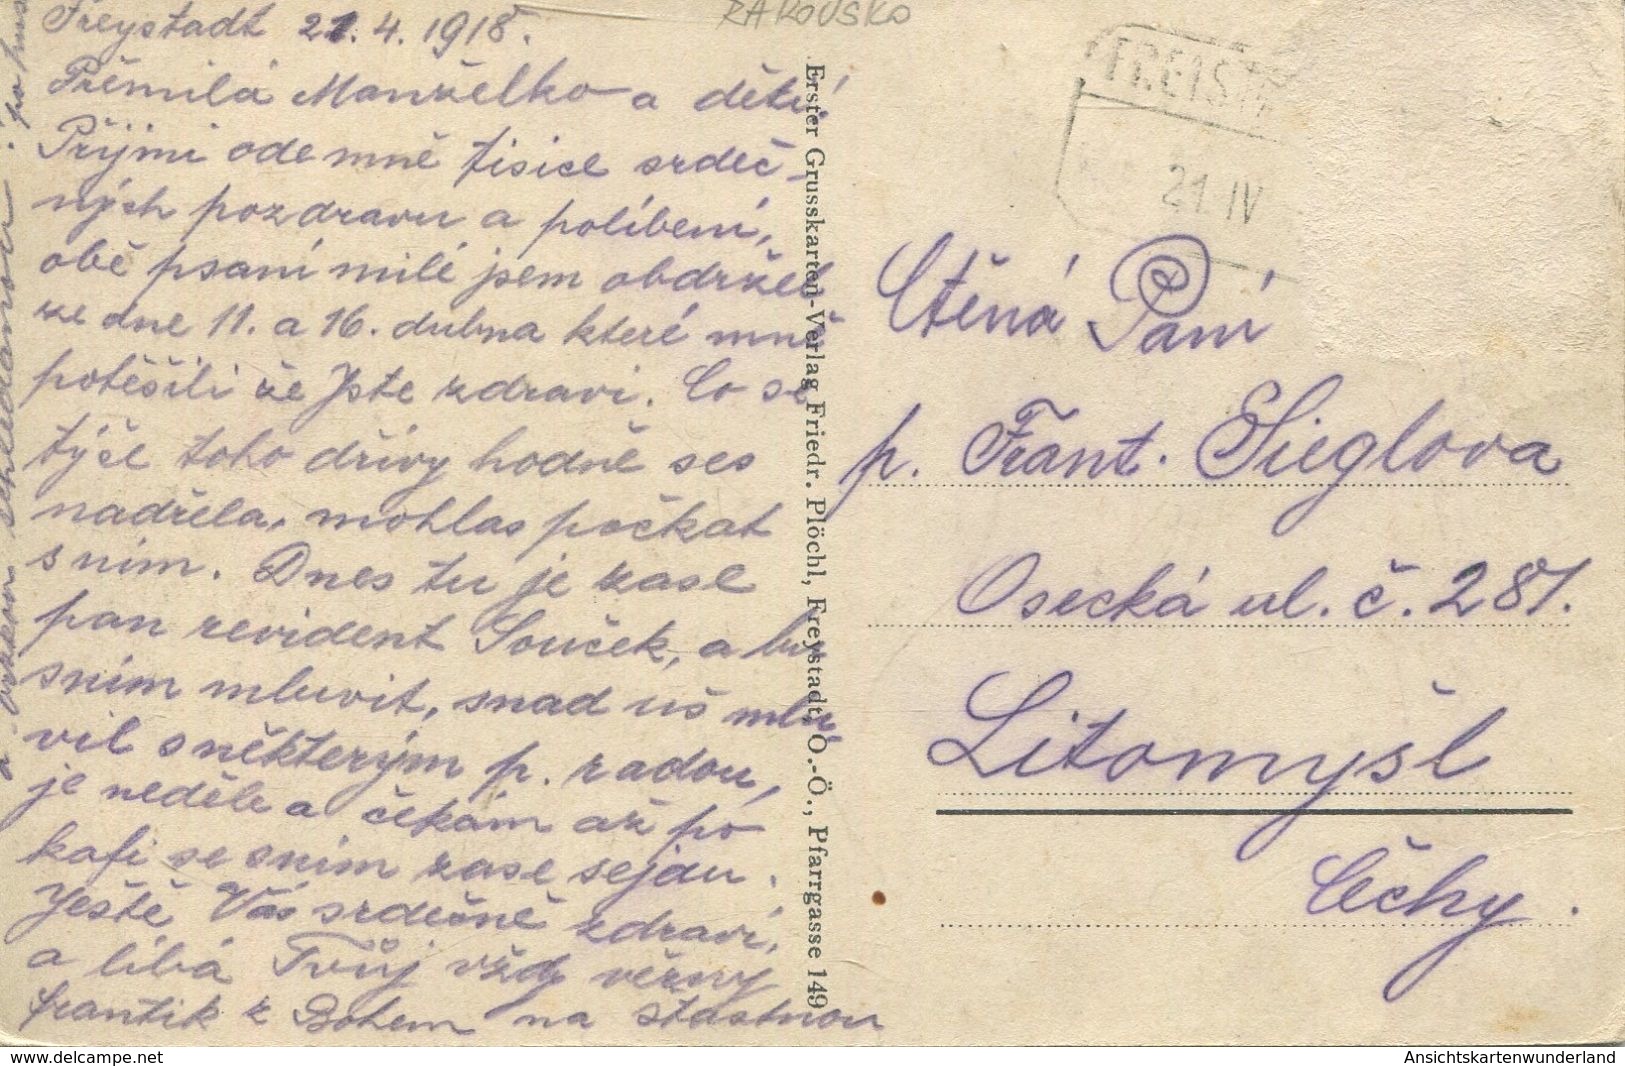 RAKOUSKO
Freystadt 21.4.1918.
Přemilá Manželko a děti!
Přijmi ode mně tisice srdeč-
ných pozdravu a políbení,
obě psaní milé jsem obdržel
ze dne 11. a 16. dubna které mně
potěšili že Jste zdravi. Co se
týče toho dřívy hodně ses
nadřela, mohlas počkat
s ním. Dnes tu je zase
pan revident Souček, a bu
sním mluvit, snad uš mlu-
vil s některým p. radou,
je neděle a čekám až po
kafi se sním zase sejdu.
Ještě Vás srdečně zdraví,
a líbá Tvůj vždy věrny
frantik z Bohem na stastnou
a brzkou shledanou
FREIST
21. IV
Ctěná Paní
p. Frant. Sieglova
Osecká ul. č. 287.
Litomyšl
Čechy.
Erster Grusskarten-Verlag Friedr. Plöchl, Freystadt, O.-Ö., Pfarrgasse 149
www.delcampe.net
Ansichtskartenwunderland